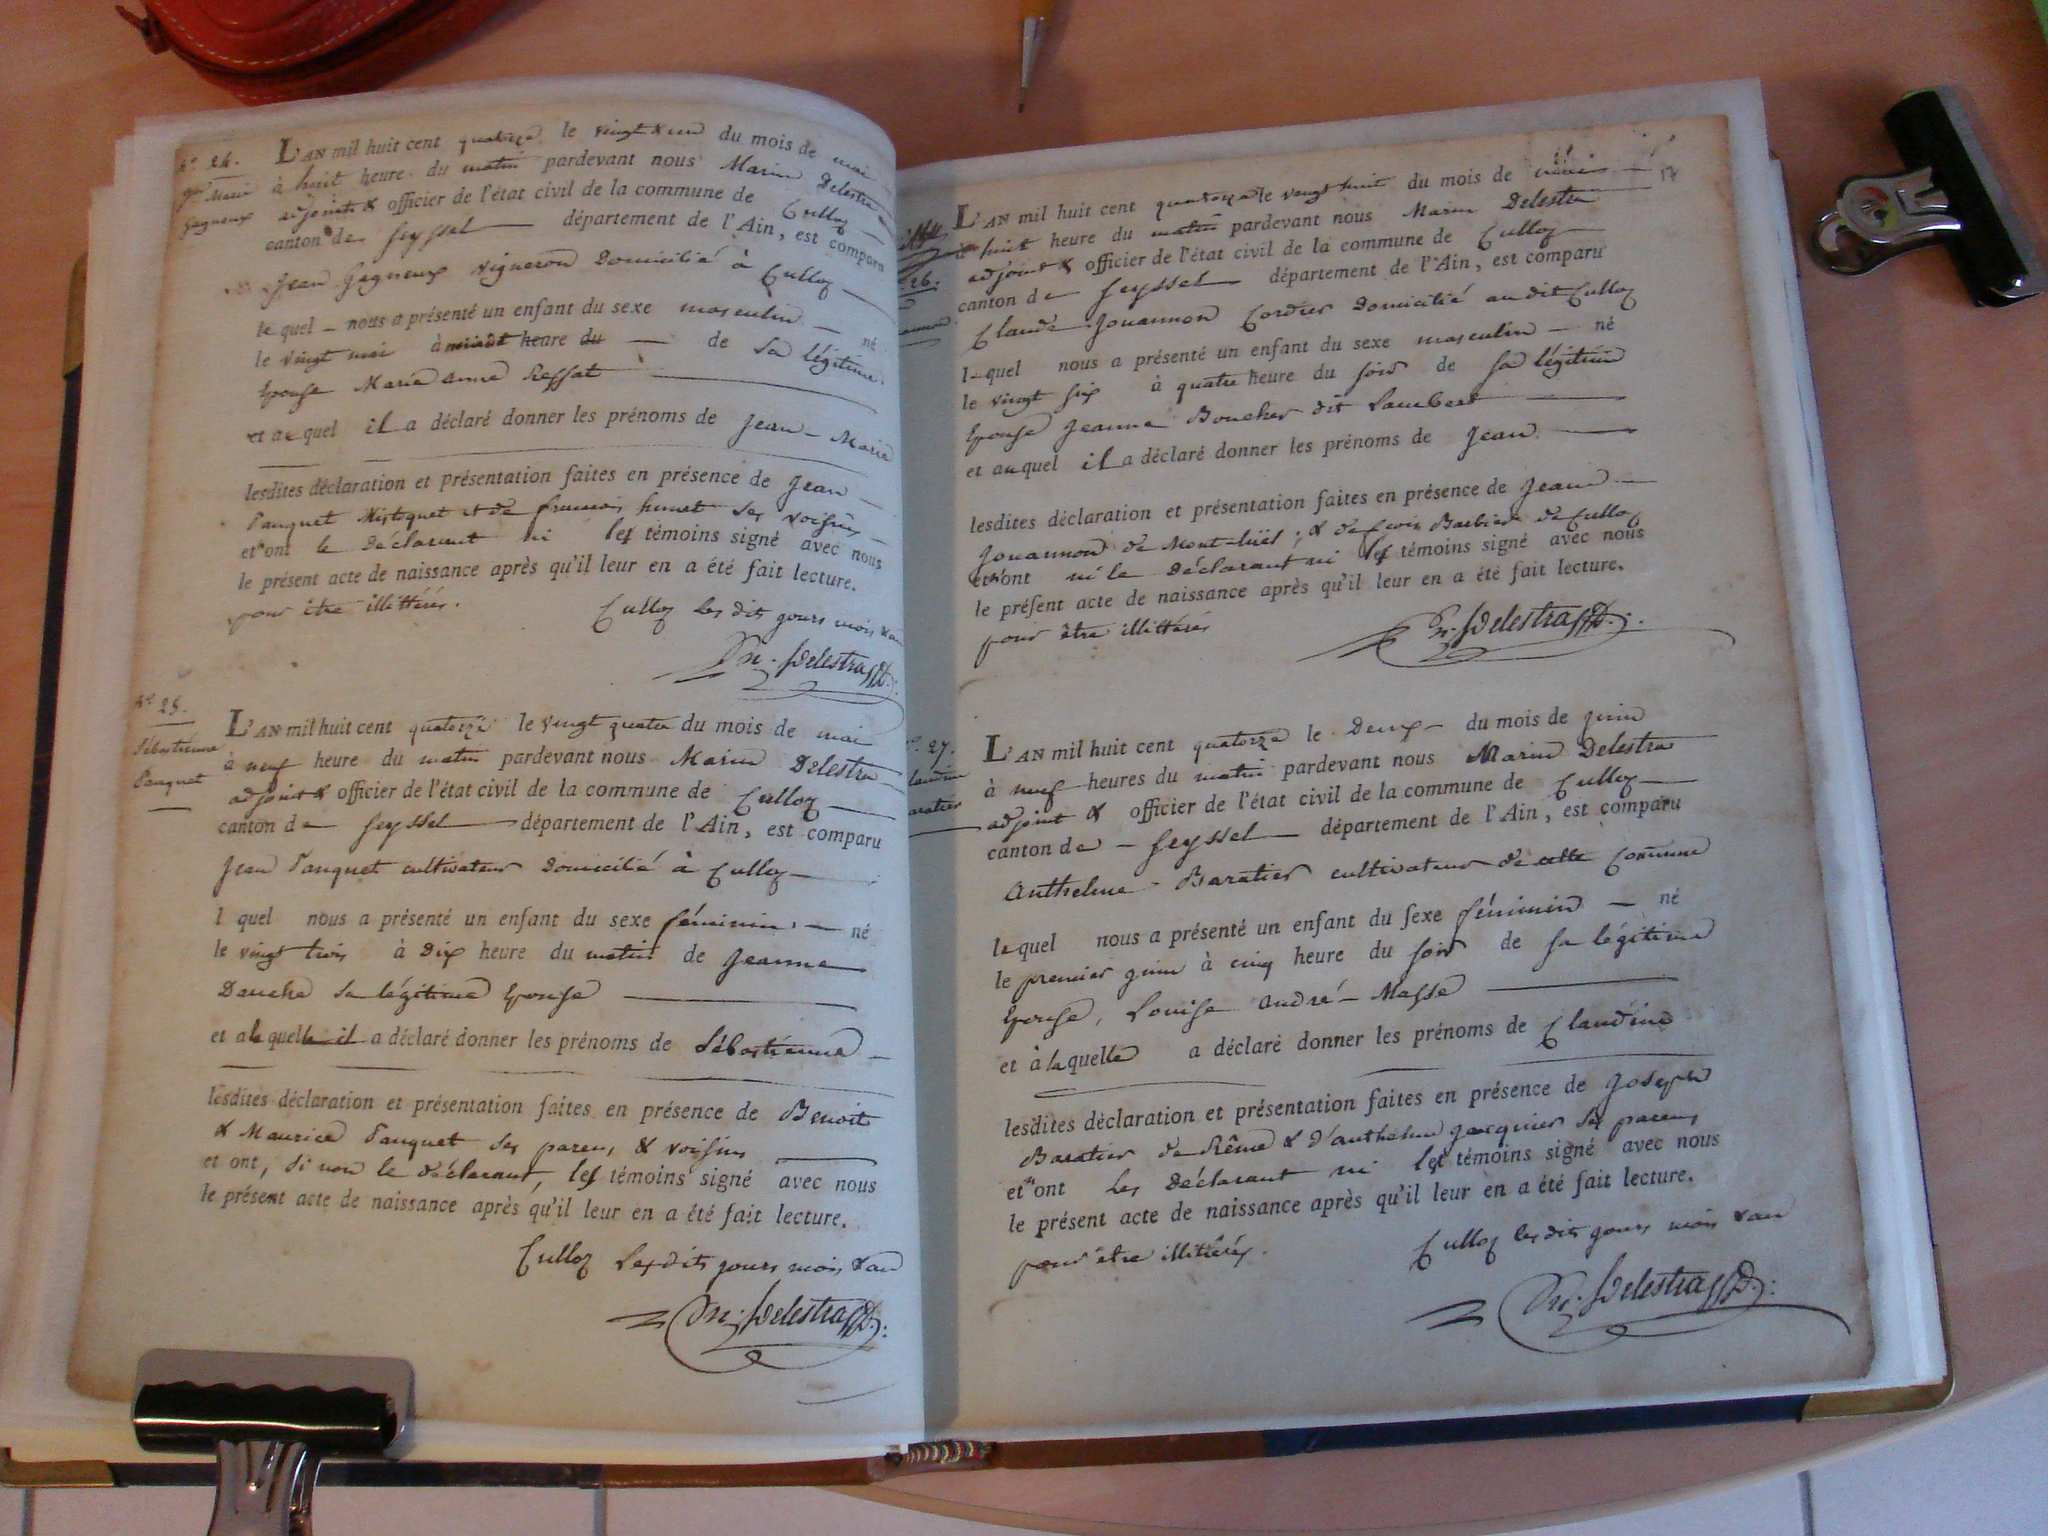 n.° 24.
Jean Marie
Gagneux
L'AN mil huit cent quatorze le vingt & un du mois de mai
à huit heure du matin pardevant nous Marin Delestra
adjoint & officier de l'état civil de la commune de Culloz
canton de Seyssel département de l'Ain, est comparu
Jean Gagneux vigneron Domicilié à Culloz
lequel nous a présenté un enfant du sexe masculin né
le vingt mai à minuit heure du de Sa légitime
Epouse Marie anne Ressat
et auquel il a déclaré donner les prénoms de Jean-Marie
lesdites déclaration et présentation faites en présence de Jean
Pauquet Mistoquet et de françois humet Ses voisins
et n'ont le Déclarant ni les témoins signé avec nous
le présent acte de naissance après qu'il leur en a été fait lecture.
pour être illittérés. Culloz les dits jours mois & an
M. Delestra adj.:
n.° 25.
Sébastienne
Pauquet
L'AN mil huit cent quatorze le vingt quatre du mois de mai
à neuf heure du matin pardevant nous Marin Delestra
adjoint & officier de l'état civil de la commune de Culloz
canton de Seyssel département de l'Ain, est comparu
Jean Pauquet cultivateur Domicilié à Culloz
l quel nous a présenté un enfant du sexe féminin né
le vingt trois à Dix heure du matin de Jeanne
Dauche Sa légitime Epouse
et à laquelle il a déclaré donner les prénoms de Sébastienne
lesdites déclaration et présentation faites en présence de Benoit
& Maurice Pauquet Ses parens & voisins
et ont, Si non le déclarant, les témoins signé avec nous
le présent acte de naissance après qu'il leur en a été fait lecture.
Culloz Lesdits jours mois & an
M. Delestra adj.:
17
26.
L'AN mil huit cent quatorze le vingt huit du mois de mai
à huit heure du matin pardevant nous Marin Delestra
adjoint & officier de l'état civil de la commune de Culloz
canton de Seyssel département de l'Ain, est comparu
Claude Jouannon Cordier Domicilié audit Culloz
lequel nous a présenté un enfant du sexe masculin né
le vingt six à quatre heure du soir de Sa légitime
Epouse Jeanne Boucher dit Lambert
et auquel il a déclaré donner les prénoms de Jean
lesdites déclaration et présentation faites en présence de Jean
Jouannon de Mont-luël; & de Barbier de Culloz
et n'ont ni le Déclarant ni les témoins signé avec nous
le présent acte de naissance après qu'il leur en a été fait lecture.
pour être illittérés M. Delestra adj.:
27.
L'AN mil huit cent quatorze le Deux du mois de juin
à neuf heures du matin pardevant nous Marin Delestra
adjoint & officier de l'état civil de la commune de Culloz
canton de Seyssel département de l'Ain, est comparu
Anthelme Baratier cultivateur de cette Commune
lequel nous a présenté un enfant du sexe féminin né
le premier juin à cinq heure du soir de Sa légitime
Epouse, Louise André-Masse
et à laquelle a déclaré donner les prénoms de Claudine
lesdites déclaration et présentation faites en présence de Joseph
Baratier de Rême & d'anthelme Jacquier Ses parens
et n'ont les Déclarant ni les témoins signé avec nous
le présent acte de naissance après qu'il leur en a été fait lecture.
pour être illitérés. Culloz lesdits jours mois & an
M. Delestra adj.: